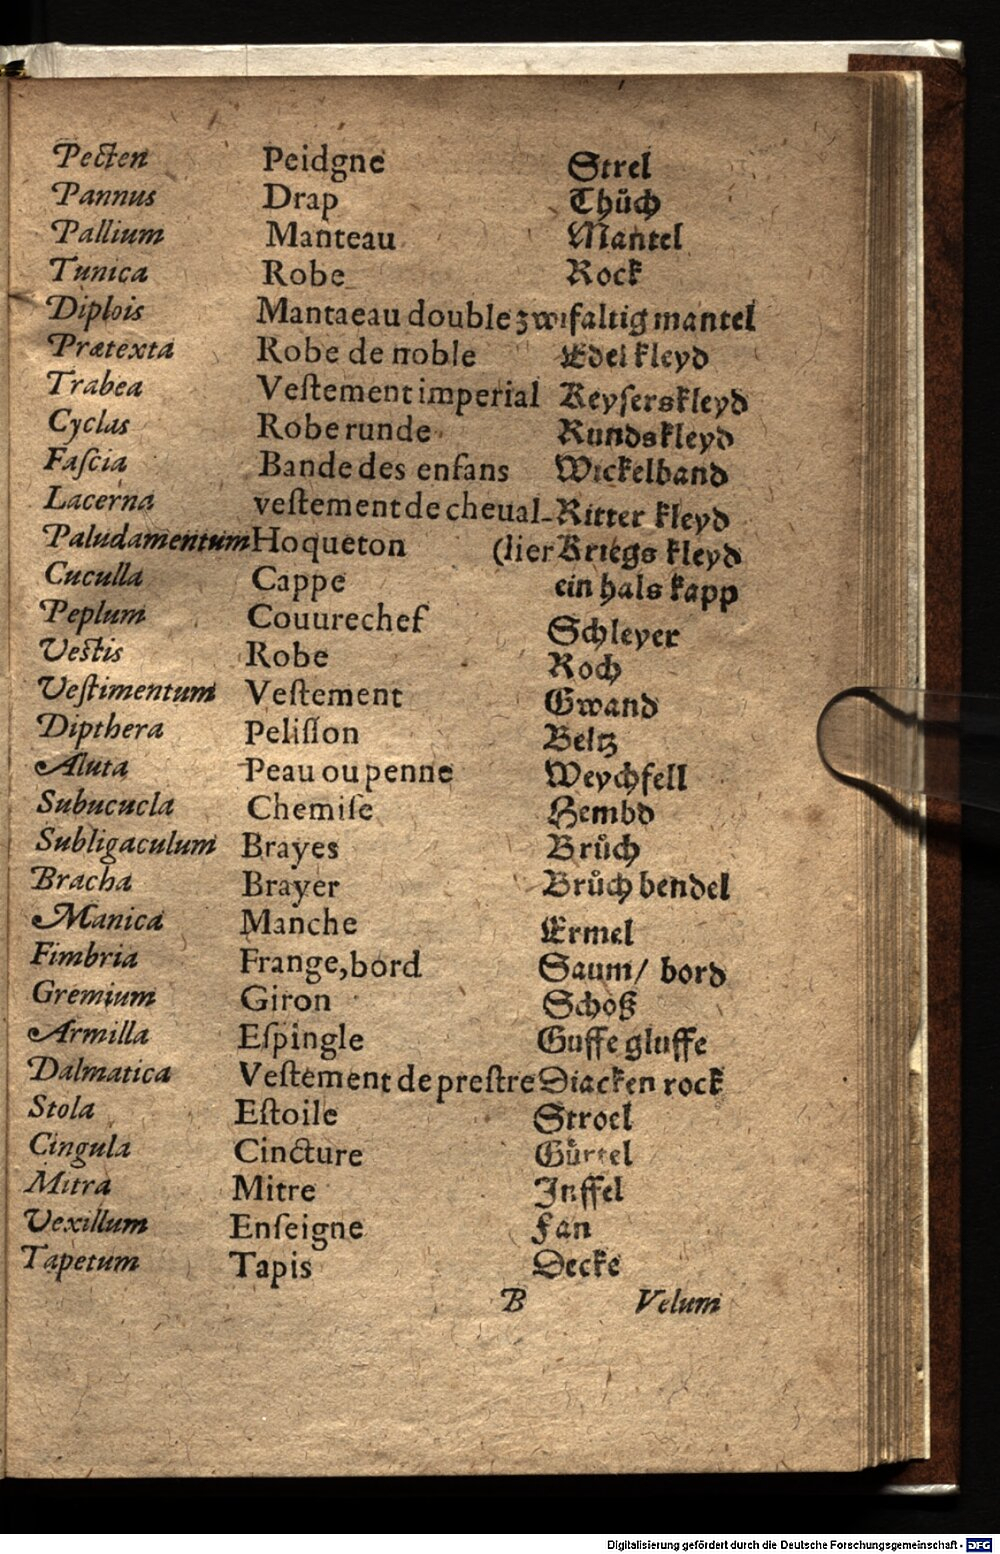 Pecten Peidgne Strel
Pannus Drap Thůch
Pallium Manteau Mantel
Tunica Robe Rock
Diplois Mantaeau double zwifaltig mantel
Prætexta Robe de noble Edel kleyd
Trabea Veſtement imperial Keyſerskleyd
Cyclas Robe runde Rundskleyd
Faſcia Bande des enfans Wickelband
Lacerna veſtement de cheual- Ritter kleyd
Paludamentum Hoqueton (lier Kriegs kleyd
Cuculla Cappe ein hals kapp
Peplum Couurechef Schleyer
Veſtis Robe Roch
Veſtimentum Veſtement Gwand
Dipthera Peliſſon Beltz
Aluta Peau ou penne Weychfell
Subucucla Chemiſe Hembd
Subligaculum Brayes Brůch
Bracha Brayer Brůch bendel
Manica Manche Ermel
Fimbria Frange,bord Saum/ bord
Gremium Giron Schoß
Armilla Eſpingle Guffe gluffe
Dalmatica Veſtement de preſtre Diacken rock
Stola Eſtoile Stroel
Cingula Cincture Gürtel
Mitra Mitre Inffel
Vexillum Enſeigne Fan
Tapetum Tapis Decke
B Velum
Digitalisierung gefördert durch die Deutsche Forschungsgemeinschaft - DFG